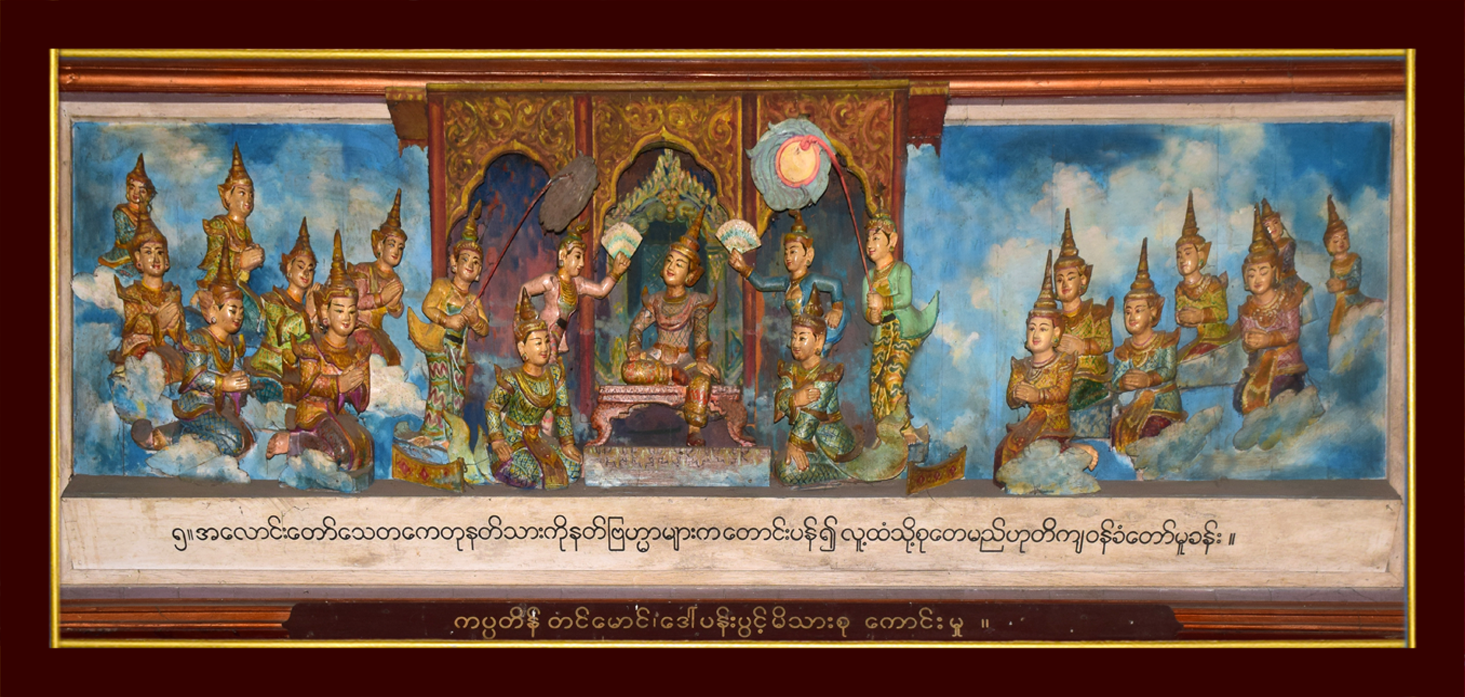 ၅။အလောင်းတော်သေတကေတုနတ်သားကိုနတ်ဗြဟ္မာများကတောင်းပန်၍ လူ့ထံသို့စုတေမည်ဟုတိကျဝန်ခံတော်မူခန်း ။
ကပ္ပတိန် တင်မောင်၊ဒေါ်ပန်းပွင့်မိသားစု ကောင်းမှု ။